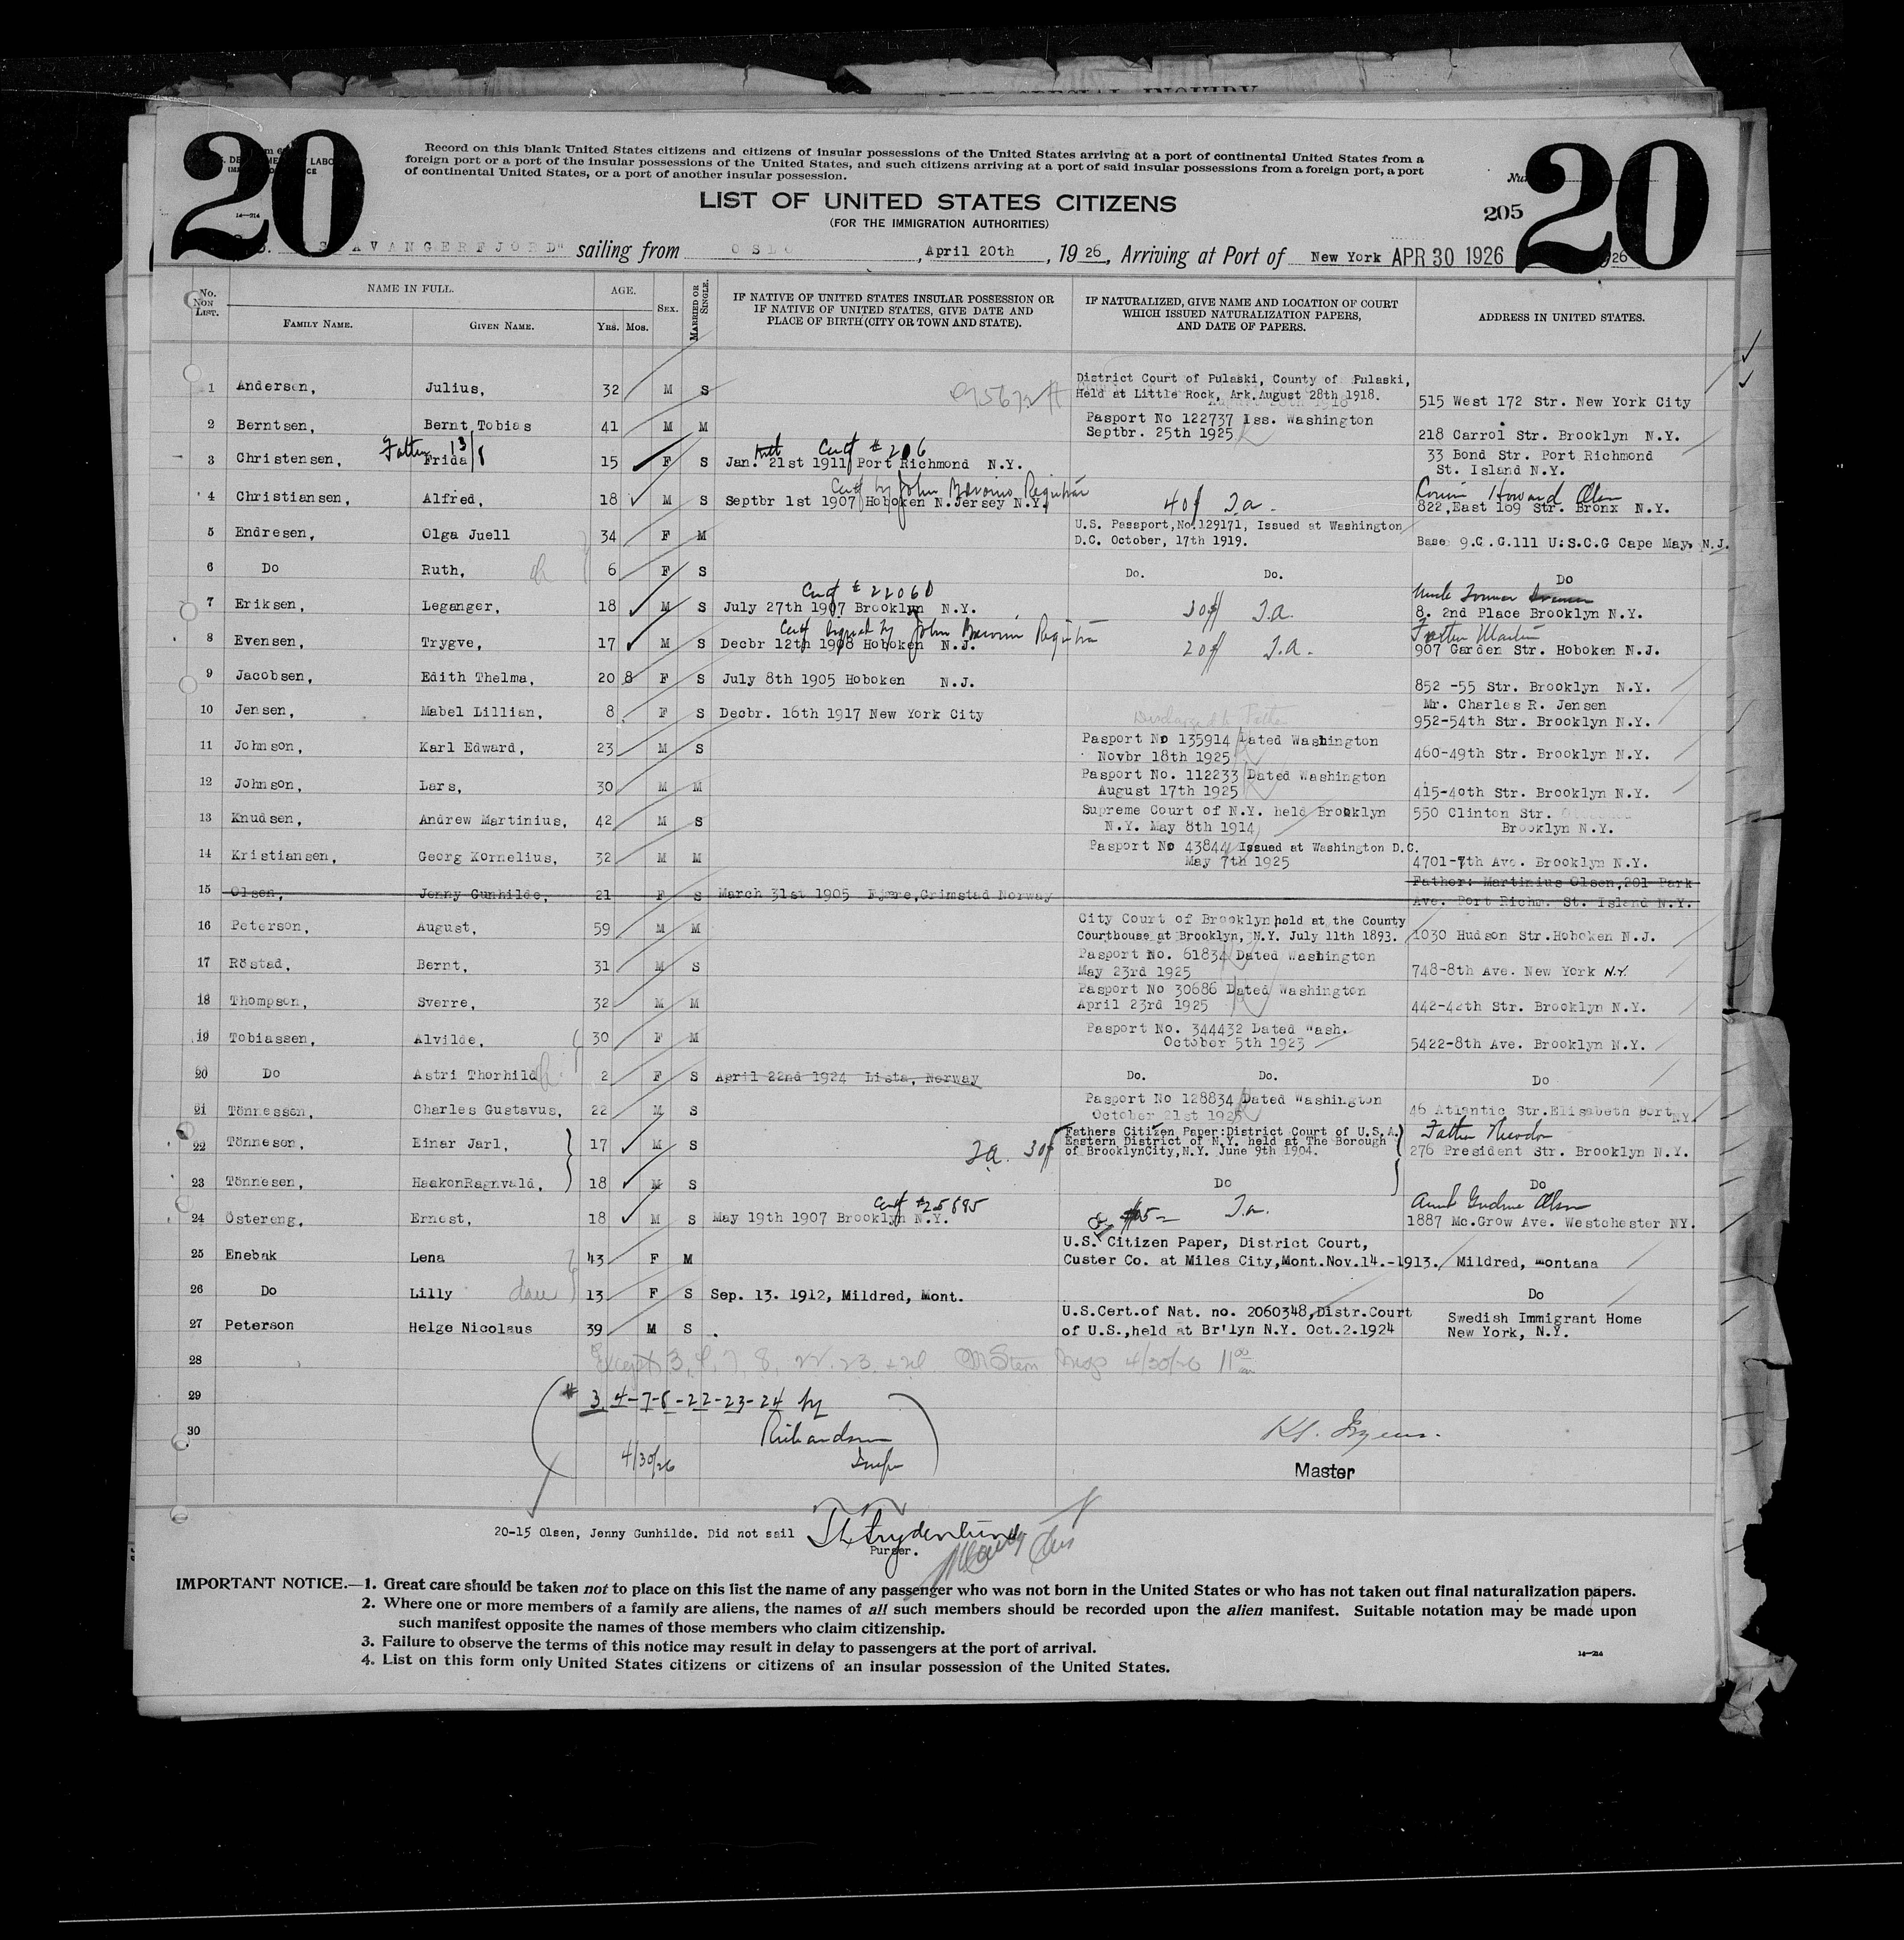 SPECIAL INQUIRY
20
20
Record on this blank United States citizens and citizens of insular possessions of the United States arriving at a port of continental United States from a
foreign port or a port of the insular possessions of the United States, and such citizens arriving at a port of said insular possessions from a foreign port, a port
of continental United States, or a port of another insular possession.
LIST OF UNITED STATES CITIZENS
(FOR THE IMMIGRATION AUTHORITIES)
205
14—214
AVANGERFJORD" sailing from OSLO, April 20th, 1926, Arriving at Port of New York APR 30 1926
No. on List. NAME IN FULL. AGE. Sex. Married or Single. IF NATIVE OF UNITED STATES INSULAR POSSESSION OR IF NATIVE OF UNITED STATES, GIVE DATE AND PLACE OF BIRTH (CITY OR TOWN AND STATE). IF NATURALIZED, GIVE NAME AND LOCATION OF COURT WHICH ISSUED NATURALIZATION PAPERS, AND DATE OF PAPERS. ADDRESS IN UNITED STATES.
Family Name. Given Name. Yrs. Mos.
District Court of Pulaski, County of Pulaski,
1 Andersen, Julius, 32 M S Held at Little Rock, Ark. August 28th 1918. 515 West 172 Str. New York City
2 Berntsen, Bernt Tobias 41 M M Pasport No 122737 Iss. Washington
Septbr. 25th 1925 218 Carrol Str. Brooklyn N.Y.
Father Cert # 206
3 Christensen, Frida 15 F S Jan. 21st 1911 Port Richmond N.Y. 33 Bond Str. Port Richmond
St. Island N.Y.
Cert by John Registrar Cousin Howard Olsen
4 Christiansen, Alfred, 18 M S Septbr 1st 1907 Hoboken N.Jersey N.Y. 822,East 169 Str. Bronx N.Y.
5 Endresen, Olga Juell 34 F M U.S. Passport,No.129171, Issued at Washington
D.C. October, 17th 1919. Base 9.C.G.111 U.S.C.G Cape May. N.J.
6 Do Ruth, 6 F S Do. Do. Do
Cert # 22060 Uncle
7 Eriksen, Leganger, 18 M S July 27th 1907 Brooklyn N.Y. 8. 2nd Place Brooklyn N.Y.
Cert signed by John Registrar Father Martin
8 Evensen, Trygve, 17 M S Decbr 12th 1908 Hoboken N.J. 907 Garden Str. Hoboken N.J.
9 Jacobsen, Edith Thelma, 20 8 F S July 8th 1905 Hoboken N.J. 852 -55 Str. Brooklyn N.Y.
10 Jensen, Mabel Lillian, 8 F S Decbr. 16th 1917 New York City Discharged to Father Mr. Charles R. Jensen
952-54th Str. Brooklyn N.Y.
11 Johnson, Karl Edward, 23 M S Pasport No 135914 Dated Washington
Novbr 18th 1925 460-49th Str. Brooklyn N.Y.
12 Johnson, Lars, 30 M M Pasport No. 112233 Dated Washington
August 17th 1925 415-40th Str. Brooklyn N.Y.
13 Knudsen, Andrew Martinius, 42 M S Supreme Court of N.Y. held Brooklyn 550 Clinton Str.
N.Y. May 8th 1914 Brooklyn N.Y.
14 Kristiansen, Georg Kornelius, 32 M M Pasport No 43844 Issued at Washington D.C.
May 7th 1925 4701-7th Ave. Brooklyn N.Y.
15 Olsen, Jenny Gunhilde, 21 F S March 31st 1905 Fjære,Grimstad Norway Father: Martinius Olsen,201 Park
Ave. Port Richm. St. Island N.Y.
16 Peterson, August, 59 M M City Court of Brooklyn held at the County
Courthouse at Brooklyn, N.Y. July 11th 1893. 1030 Hudson Str.Hoboken N.J.
17 Röstad, Bernt, 31 M S Pasport No. 61834 Dated Washington
May 23rd 1925 748-8th Ave. New York N.Y.
18 Thompson, Sverre, 32 M M Pasport No 30686 Dated Washington
April 23rd 1925 442-42th Str. Brooklyn N.Y.
19 Tobiassen, Alvilde, 30 F M Pasport No. 344432 Dated Wash.
October 5th 1923 5422-8th Ave. Brooklyn N.Y.
20 Do Astri Thorhild 2 F S April 22nd 1924 Lista, Norway Do. Do. Do
21 Tönnesson, Charles Gustavus, 22 M S Pasport No 128834 Dated Washington
October 21st 1925 46 Atlantic Str.Elisabeth Port NY.
Fathers Citizen Paper:District Court of U.S.A. Father
22 Tönneson, Einar Jarl, 17 M S Eastern District of N.Y. held at The Borough
of BrooklynCity,N.Y. June 9th 1904. 276 President Str. Brooklyn N.Y.
23 Tönnesen, HaakonRagnvald, 18 M S Do Do
Cert #25895 Aunt Gudrine Olsen
24 Östereng, Ernest, 18 M S May 19th 1907 Brooklyn N.Y. 1887 Mc.Grow Ave. Westchester NY.
25 Enebak Lena 43 F M U.S. Citizen Paper, District Court,
Custer Co. at Miles City,Mont.Nov.14.-1913. Mildred, Montana
26 Do Lilly dau 13 F S Sep. 13. 1912, Mildred, Mont. Do
27 Peterson Helge Nicolaus 39 M S U.S.Cert.of Nat. no. 2060348,Distr.Court Swedish Immigrant Home
of U.S.,held at Br'lyn N.Y. Oct.2.1924 New York, N.Y.
28 Except 3, 4, 7, 8, 22, 23, + 24. M Stern Insp 4/30/26 11 00 am
29 # 3, 4-7-8-22-23-24 by
30 Richardson
4/30/26 Insp
Master
20-15 Olsen, Jenny Gunhilde. Did not sail
Purser.
IMPORTANT NOTICE.—1. Great care should be taken not to place on this list the name of any passenger who was not born in the United States or who has not taken out final naturalization papers.
2. Where one or more members of a family are aliens, the names of all such members should be recorded upon the alien manifest. Suitable notation may be made upon
such manifest opposite the names of those members who claim citizenship.
3. Failure to observe the terms of this notice may result in delay to passengers at the port of arrival.
4. List on this form only United States citizens or citizens of an insular possession of the United States.
14—214